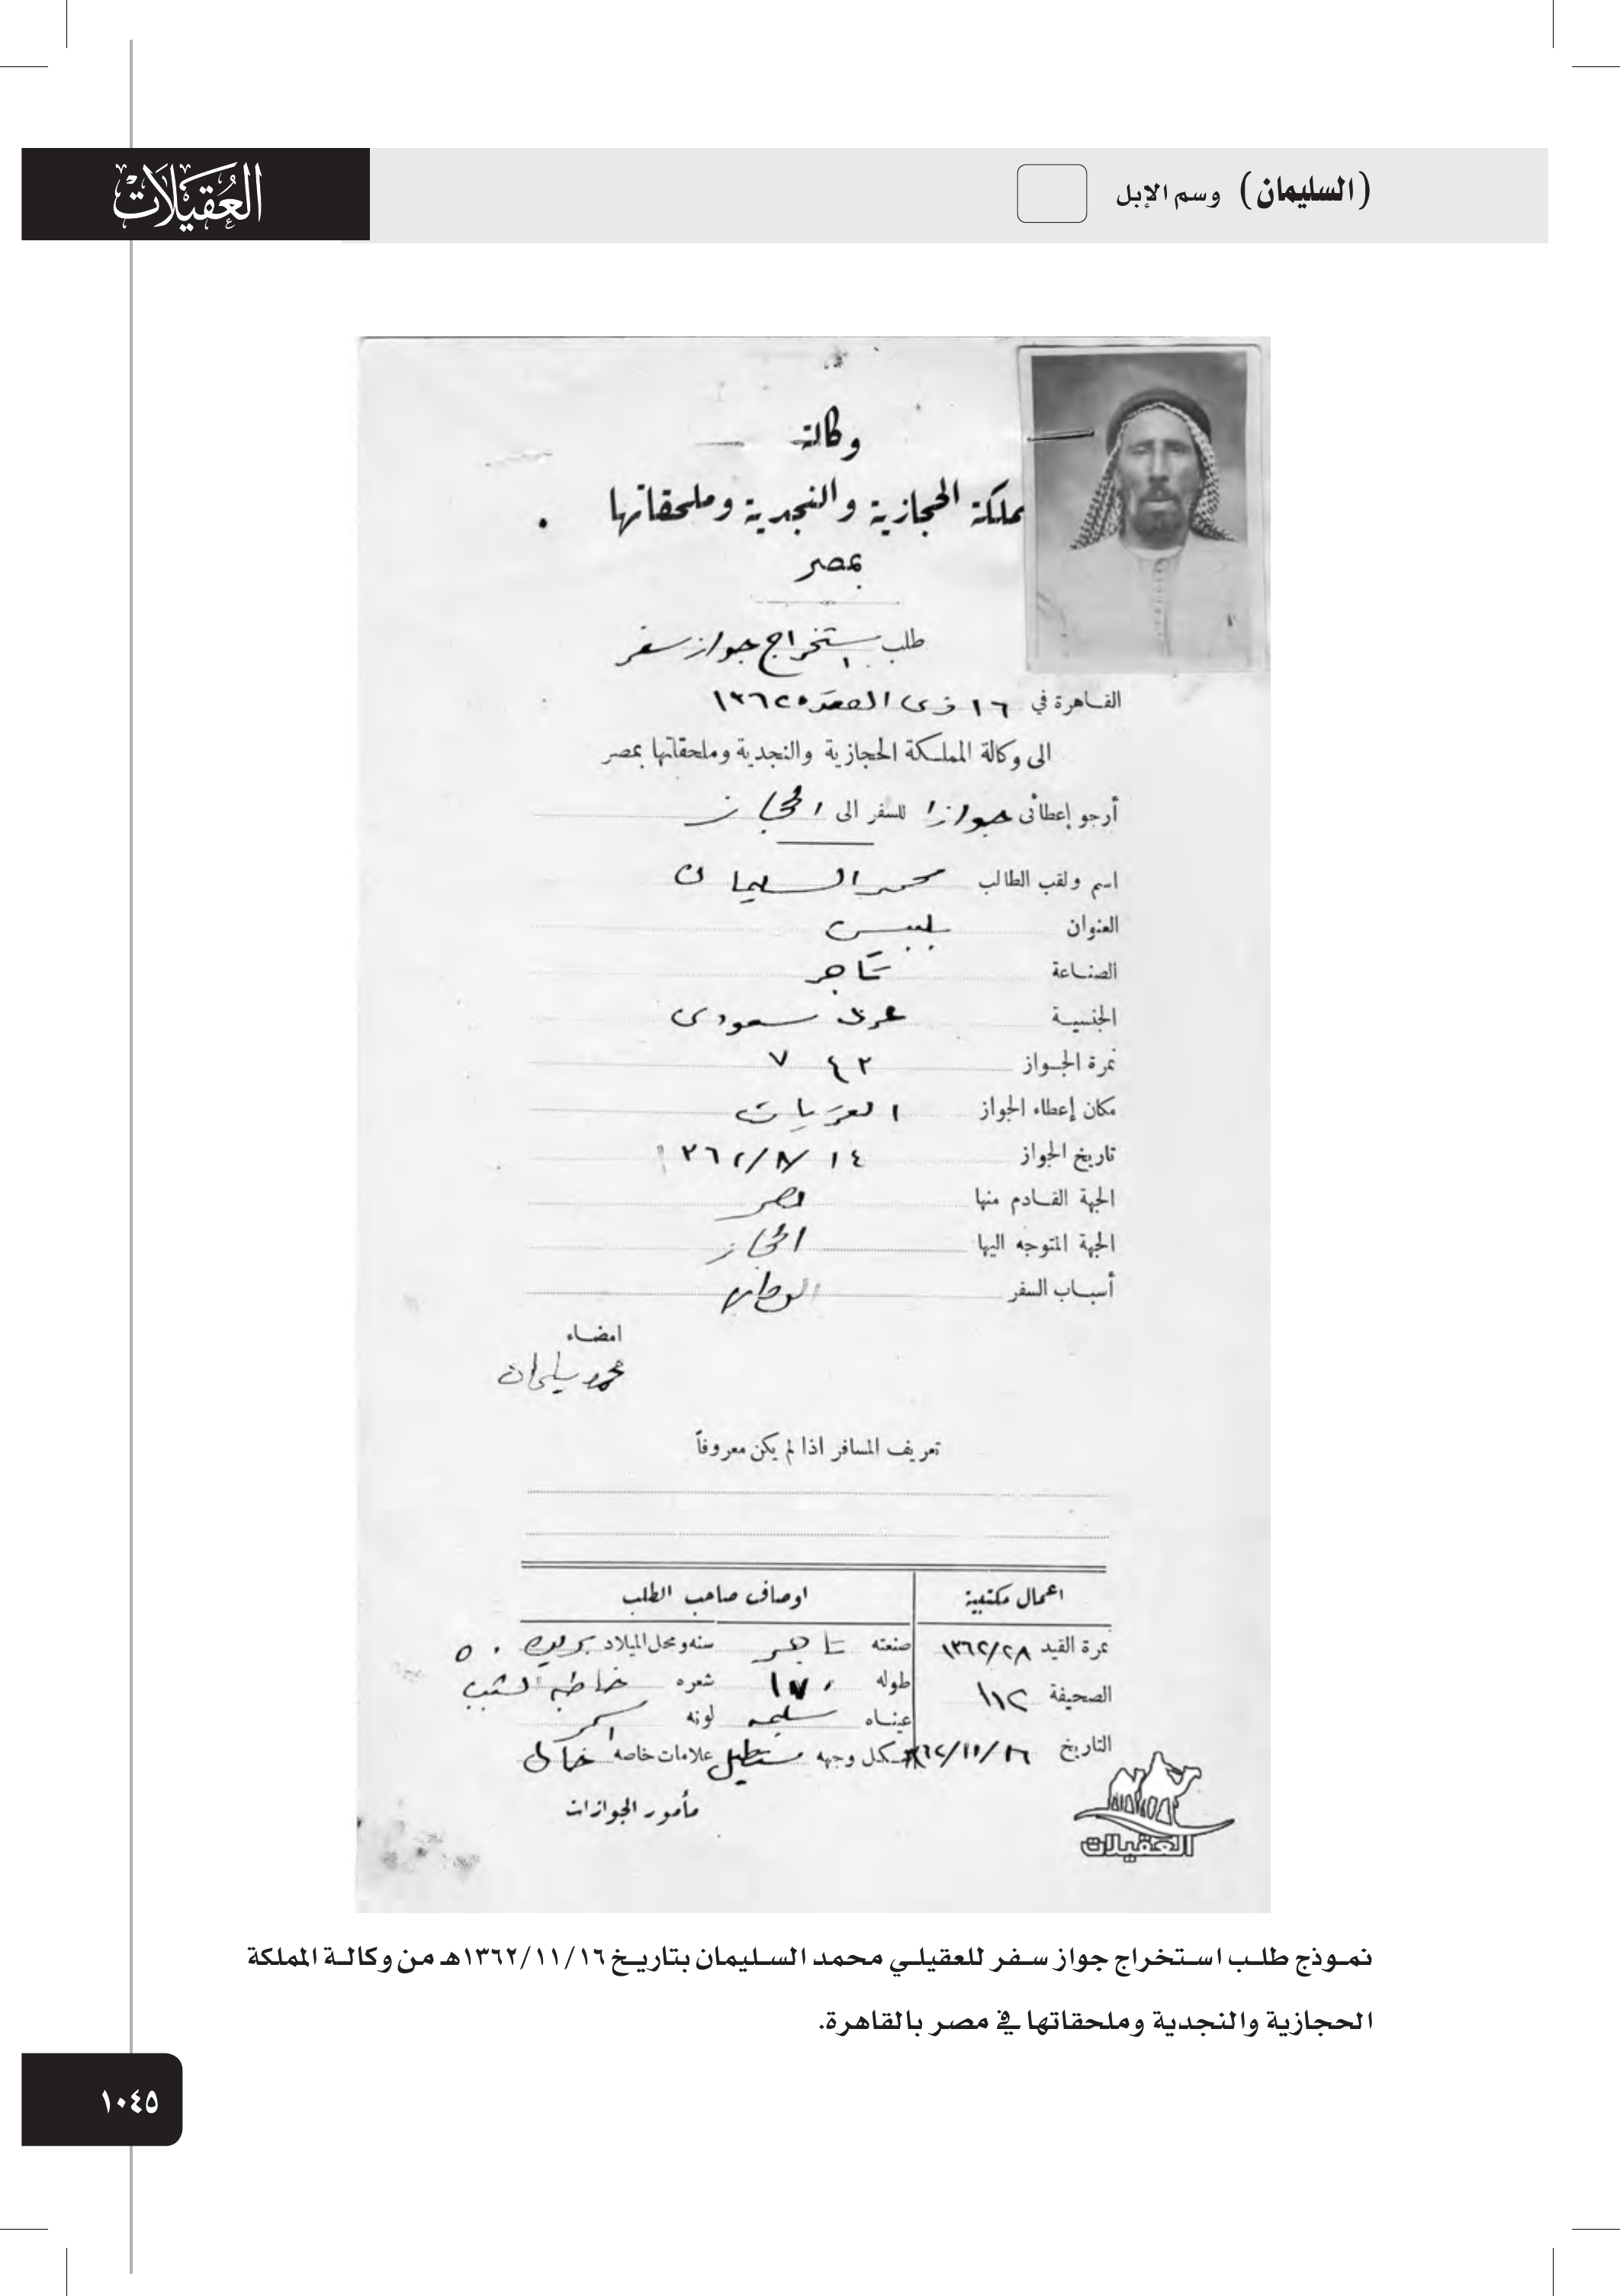 (السليمان) وسم الإبل
العقيلات
وكالة
مملكة الحجازية والنجدية وملحقاتها
بمصر
طلب استخراج جواز سفر
القاهرة في ١٦ ذى القعده ١٣٦٢
الى وكالة المملكة الحجازية والنجدية وملحقاتها بمصر
أرجو إعطائى جوازا للسفر الى الحجاز
اسم ولقب الطالب محمد السليمان
العنوان بلبيس
الصناعة تاجر
الجنسية عربى سعودى
نمرة الجواز
مكان إعطاء الجواز القريات
تاريخ الجواز ١٤/٨/١٣٦٢
الجهة القادم منها مصر
الجهة المتوجه اليها الحجاز
أسباب السفر
امضاء
محمد سليمان
تعريف المسافر اذا لم يكن معروفاً
اعمال مكتبية
نمرة القيد ١٣٦٢/٢٨
الصحيفة ١١٢
التاريخ ١٦/١١/١٣٦٢
اوصاف صاحب الطلب
صنعته تاجر سنه ومحل الميلاد بريده ٥٠
طوله ١٧٠ شعره الشيب
عيناه سليمه لونه اسمر
شكل وجهه مستطيل علامات خاصه خالى
مأمور الجوازات
العقيلات
نموذج طلب استخراج جواز سفر للعقيلي محمد السليمان بتاريخ ١٣٦٢/١١/١٦هـ من وكالة المملكة
الحجازية والنجدية وملحقاتها في مصر بالقاهرة.
١٠٤٥